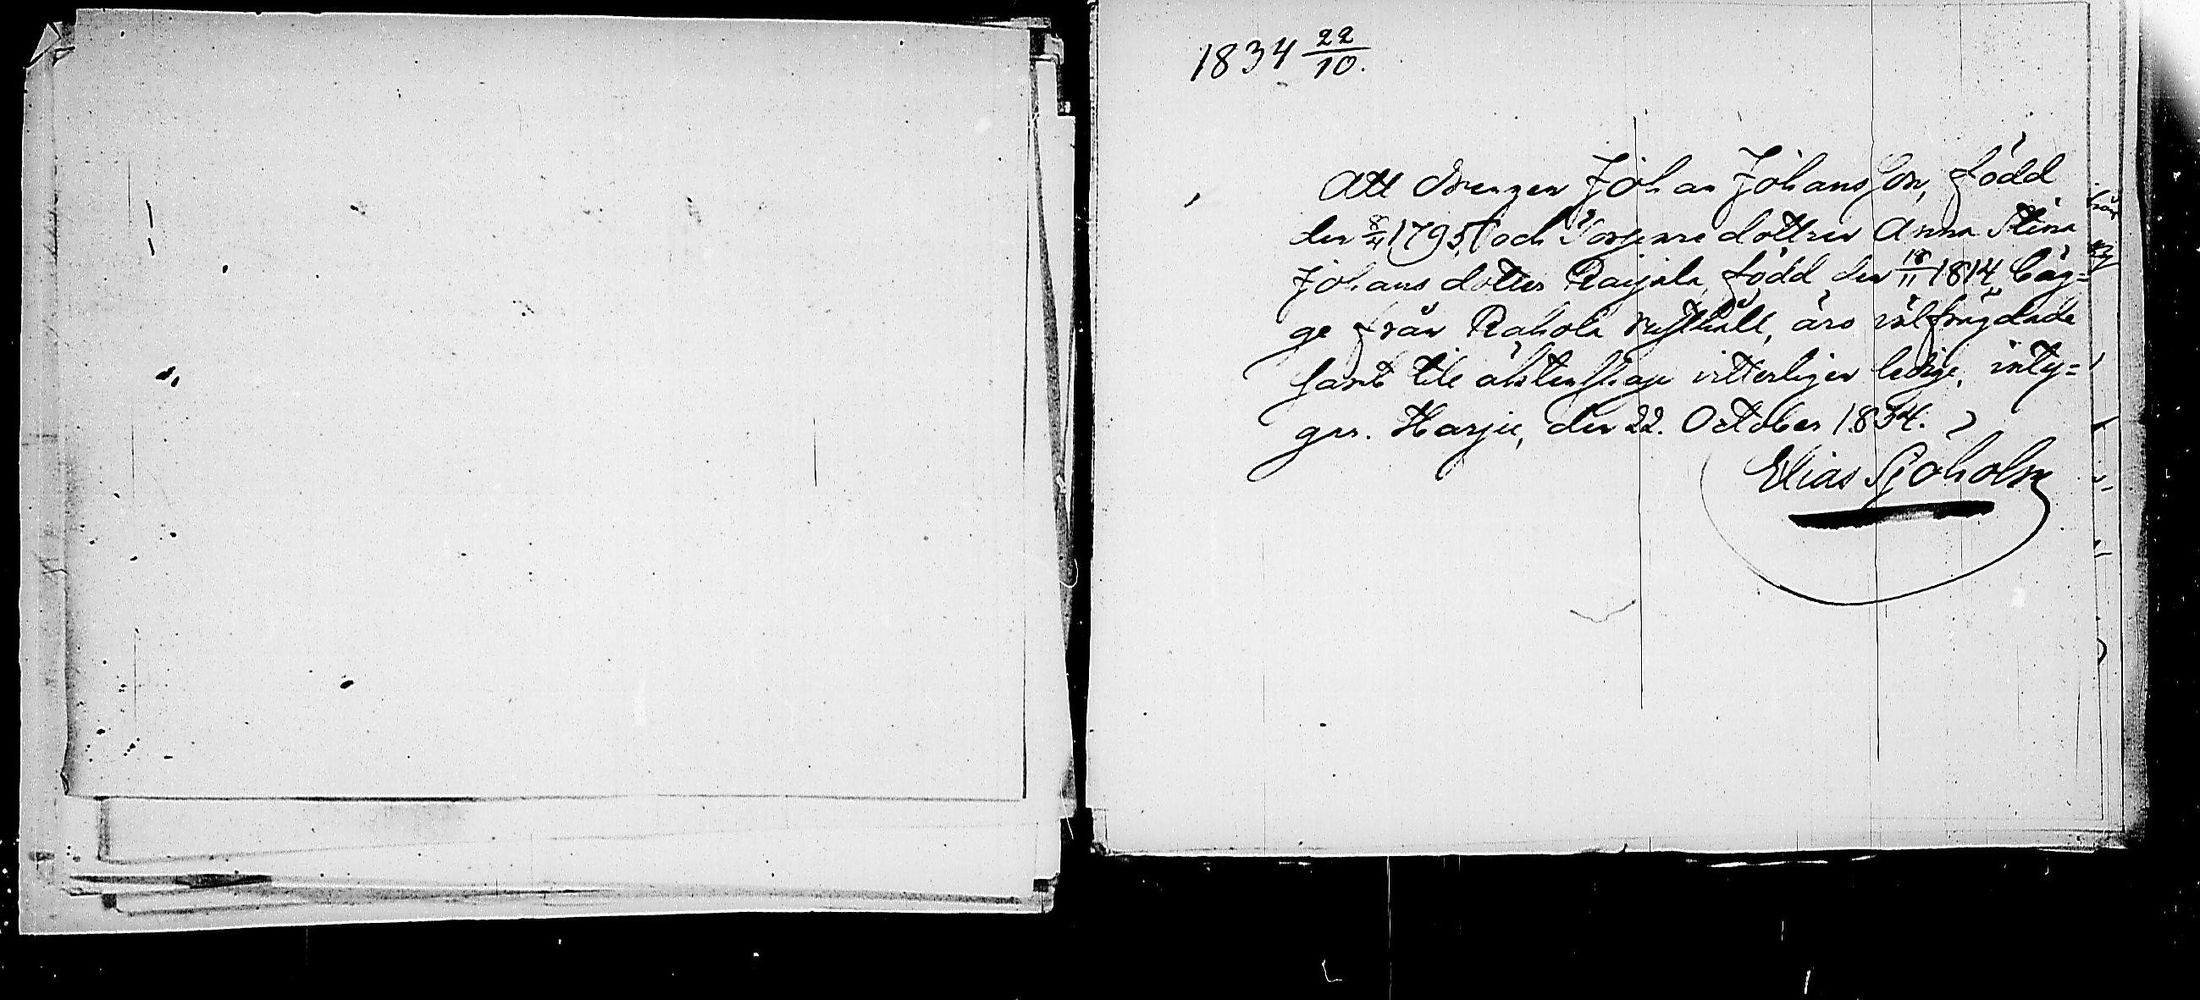 1834 22/10.
Att Drengen Johan Johansson, född
den 1795, och Torparedottren Anna Stina
Johansdotter Raijala, född den 18/11 1814, bäg=
ge från Rahola rusthåll, äro välfrägdade
samt till äktenskap vitterligen ledige, inty=
gar. Harju, den 22. October 1834.
Elias Sjöholm